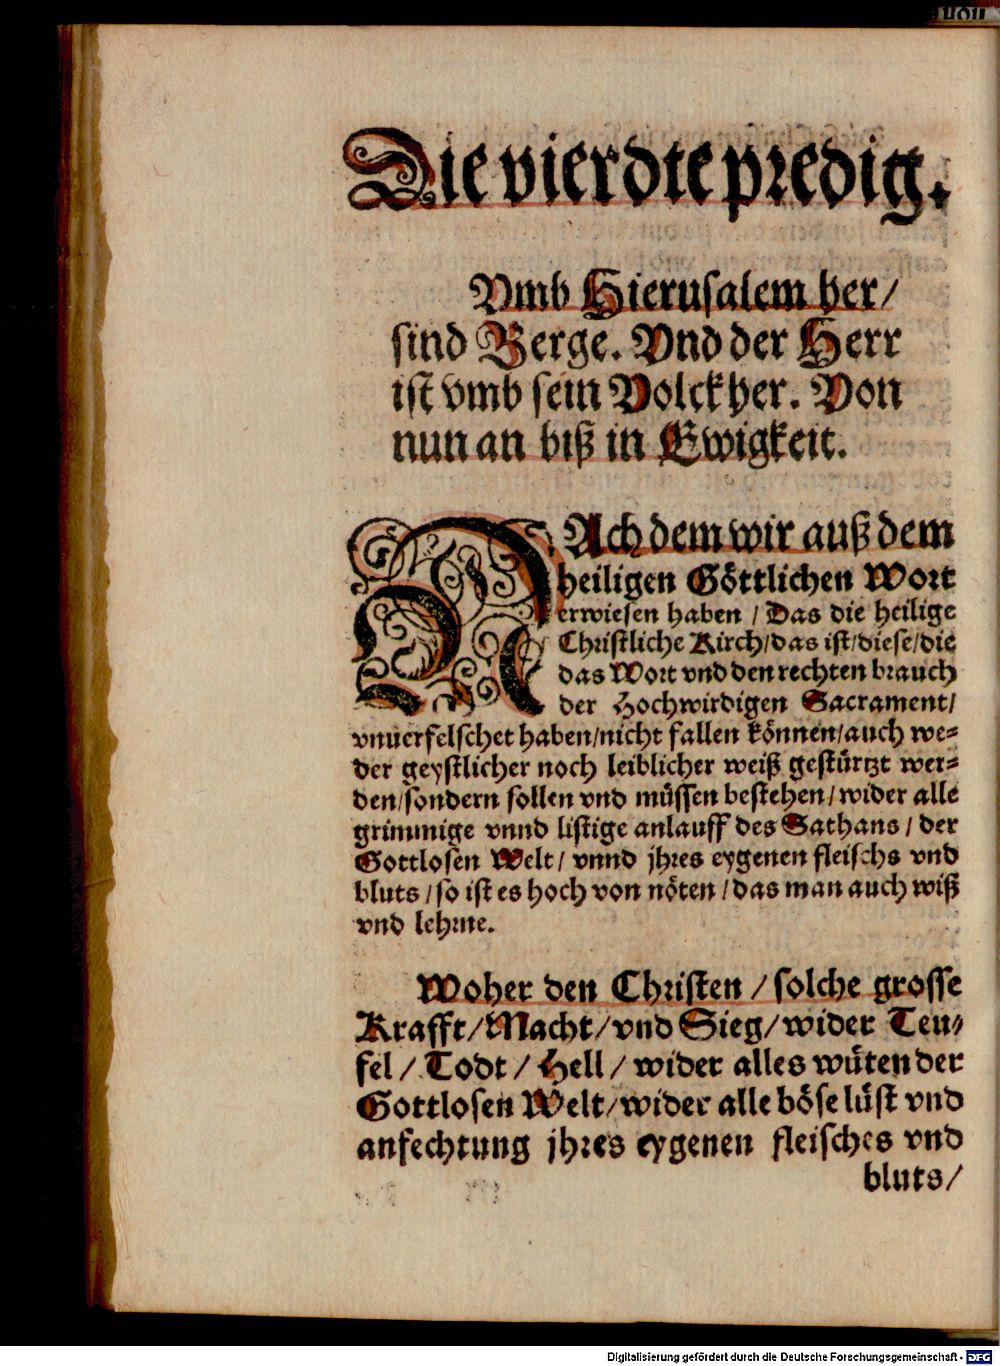 Die vierdte predig.
Vmb Hierusalem her/
sind Berge. Vnd der Herr
ist vmb sein Volck her. Von
nun an biß in Ewigkeit.
NAch dem wir auß dem
heiligen Göttlichen Wort
erwiesen haben / Das die heilige
Christliche Kirch/das ist/diese/die
das Wort vnd den rechten brauch
der Hochwirdigen Sacrament/
vnuerfelschet haben/nicht fallen können/auch we-
der geystlicher noch leiblicher weiß gestürtzt wer-
den/sondern sollen vnd müssen bestehen/wider alle
grimmige vnnd listige anlauff des Sathans / der
Gottlosen Welt/ vnnd jhres eygenen fleischs vnd
bluts /so ist es hoch von nöten /das man auch wiß
vnd lehrne.
Woher den Christen / solche grosse
Krafft/Macht/vnd Sieg/wider Teu-
fel / Todt / Hell / wider alles wüten der
Gottlosen Welt/wider alle böse lüst vnd
anfechtung jhres eygenen fleisches vnd
bluts/
Digitalisierung gefördert durch die Deutsche Forschungsgemeinschaft - DFG